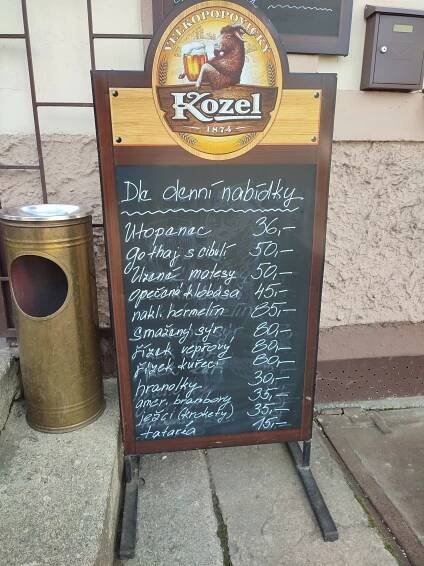 VELKOPOPOVICKÝ
Kozel
1874
Dle denní nabídky
Utopenec 36,-
gothaj s cibulí 50,-
Uzené matesy 50,-
opečená klobása 45,-
nakl. hermelín 85,-
smažený sýr 80,-
řízek vepřový 80,-
řízek kuřecí 80,-
hranolky 30,-
amer. brambory 35,-
ježci (krokety) 35,-
tatarka 15,-